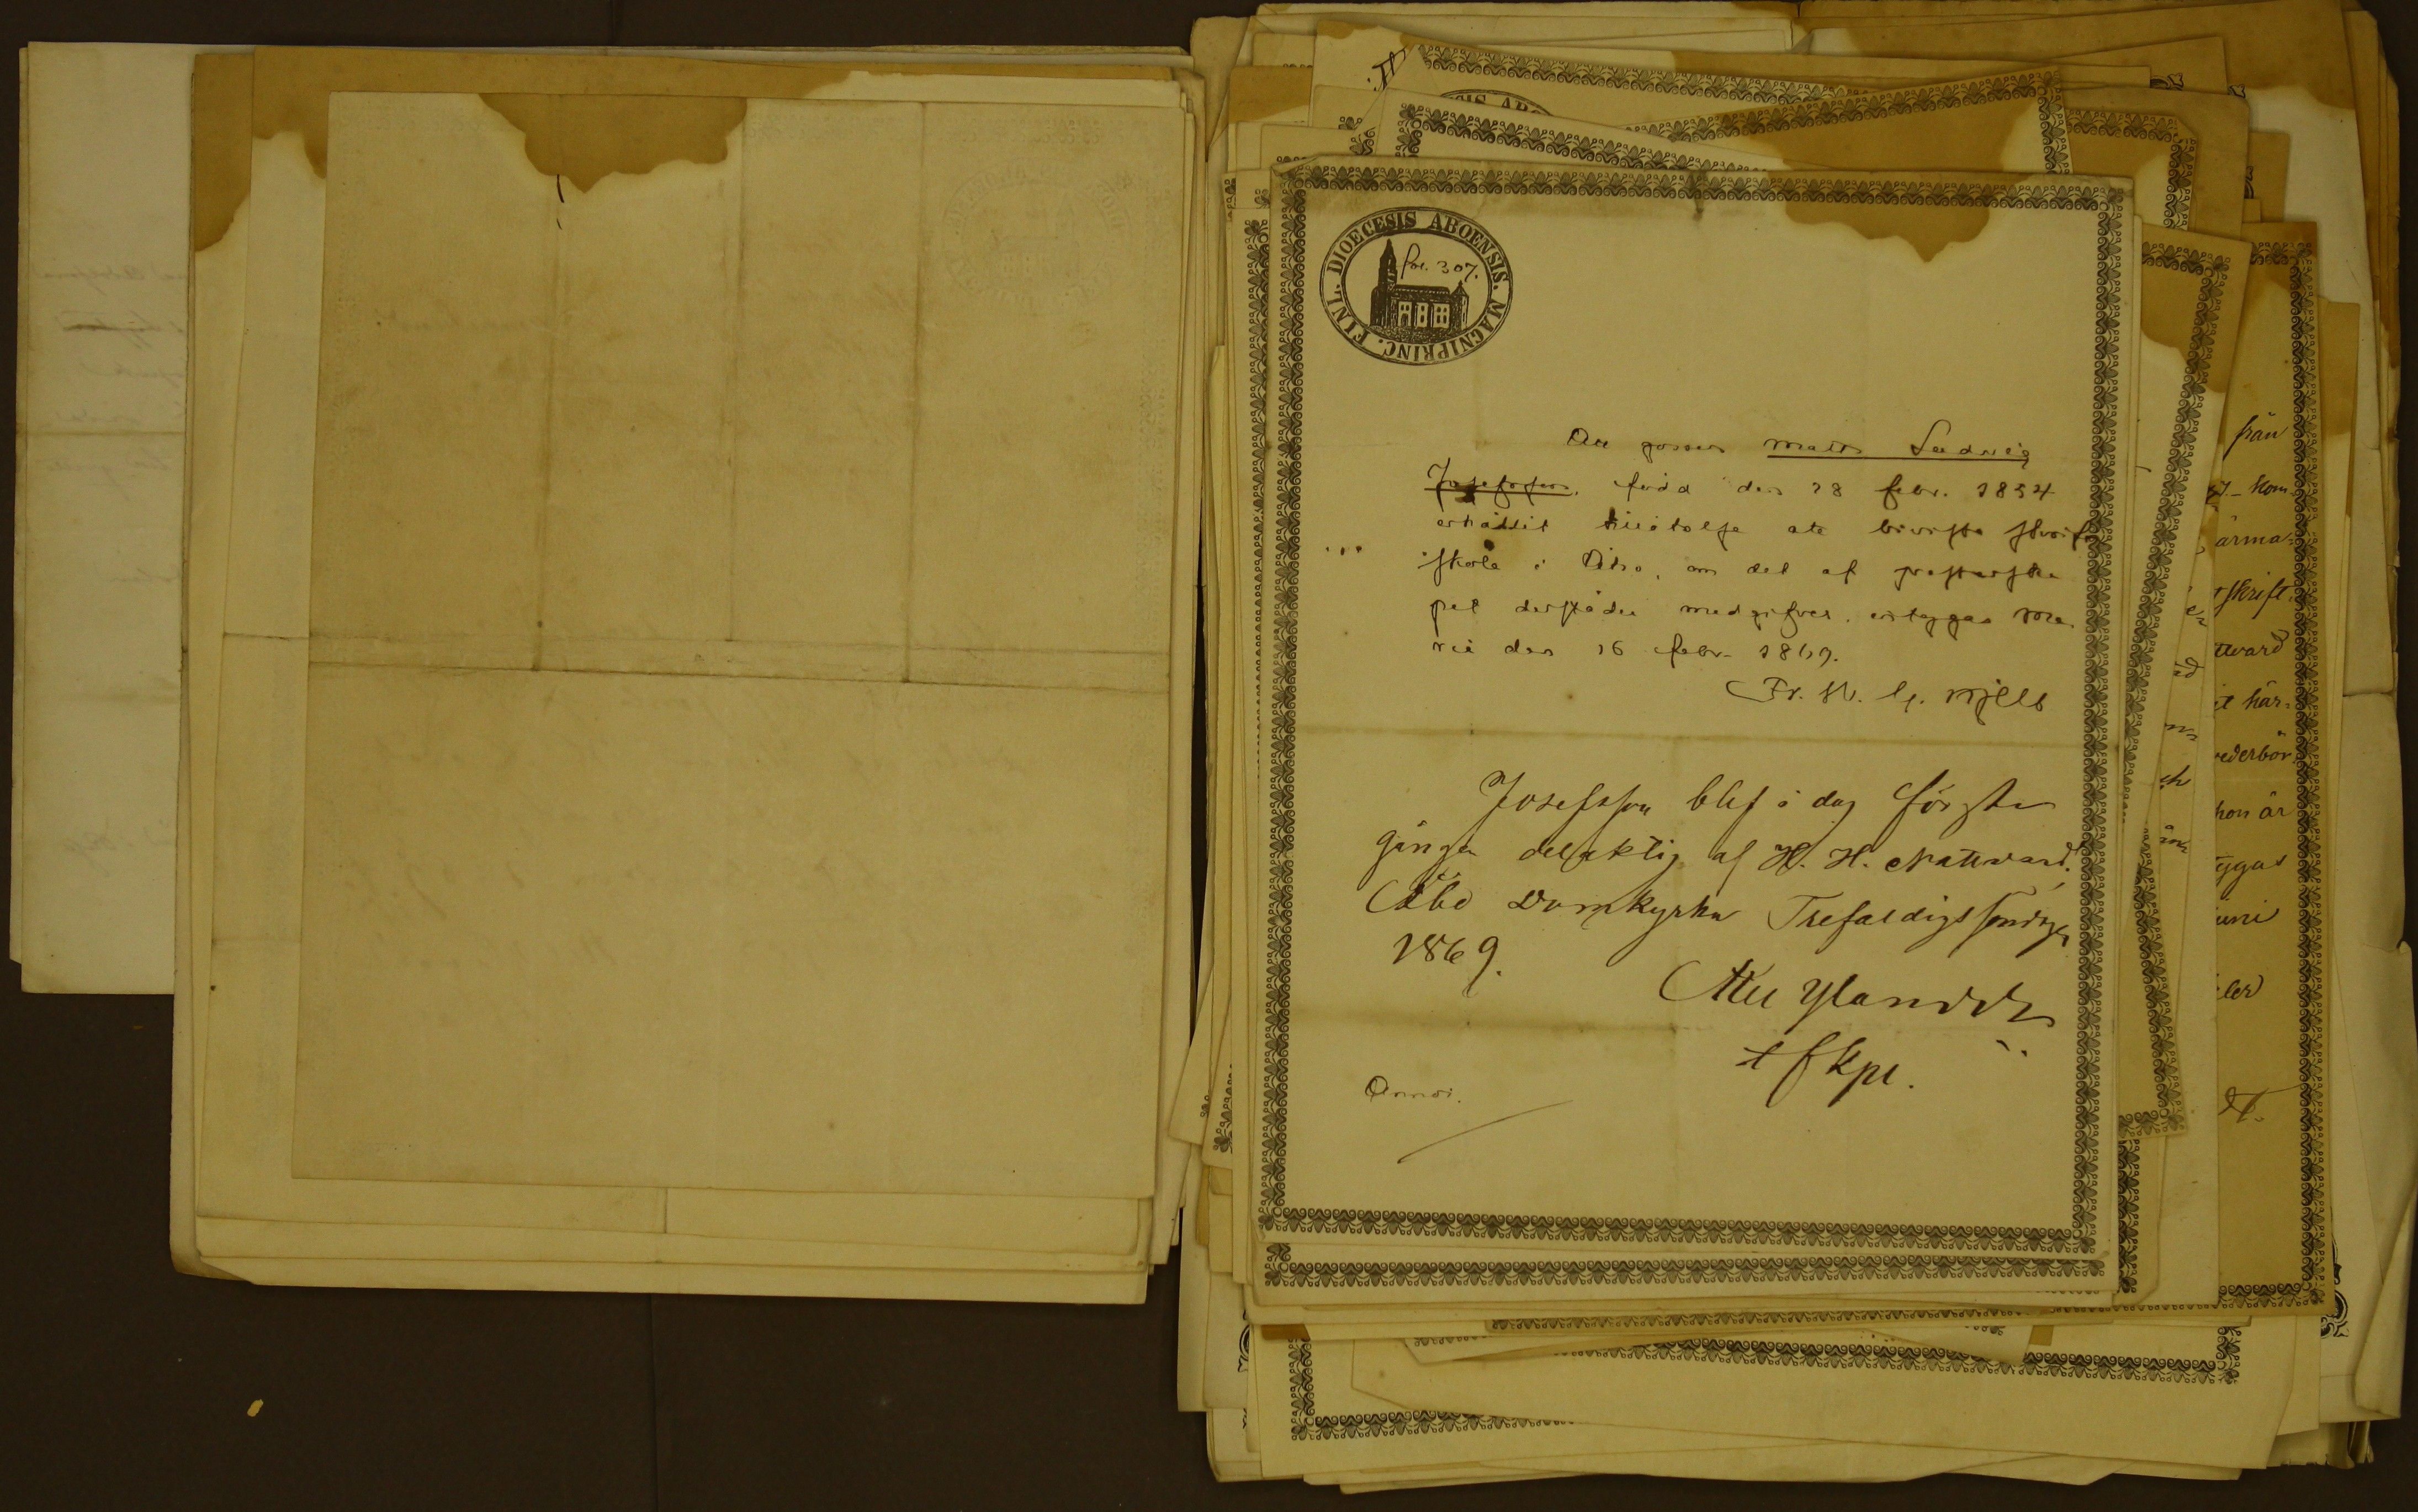 FINL. DIOECESIS ABOENSIS. MAGNIPRINC.
fol. 307.
Att gossen Matts Ludvig
Josefsson, född den 28 febr. 1854
erhållit tillåtelse att bevista skrift
skola i Åbo, om det af presterska
pet derstädes medgifves, intygas Ma
rie den 16 febr. 1869.
Fr. W. G. Hjelt
Josefsson blef i dag första
gången delaktig af H. H. Nattvard.
Åbo Domkyrka Trefaldigs söndagen
1869.
Ylander
från
Kom-
ärma-
skrift-
ttvard
här-
vederbör
hon är
tygas
juni